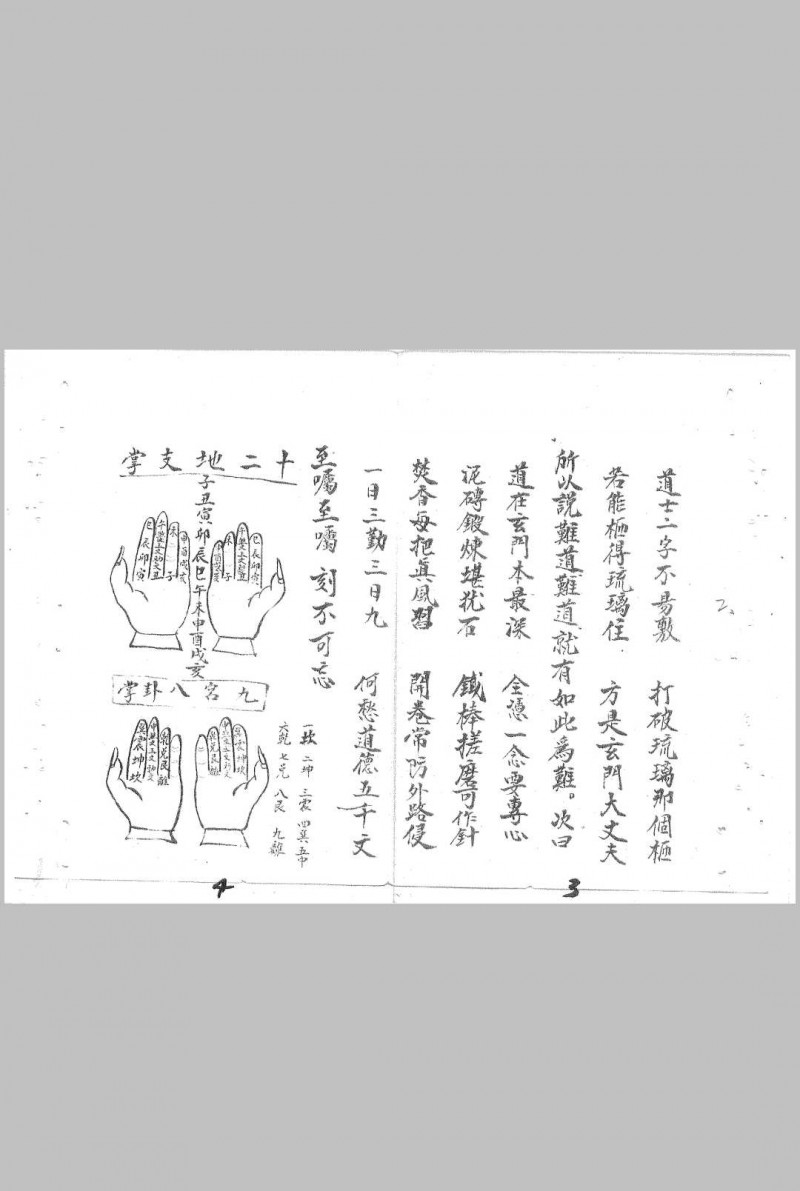 道士二字不易敷　打破琉璃那個栖
若能栖得琉璃住　方是玄門大丈夫
所以說難道難道就有如此為難。次曰
道在玄門本最深　全憑一念要專心
泥磚鍛煉堪犹石　鐵棒搓磨可作針
焚香每把真風習　開卷常防外路侵
一日三勤三日九　何愁道德五千文
至囑至囑　刻不可忘
3
十二地支掌
子丑寅卯辰巳午未申酉戌亥
巳辰卯寅
未
子
未
子
巳辰卯寅
九宮八卦掌
一坎 二坤 三震 四巽 五中
六乾 七兌 八艮 九離
4